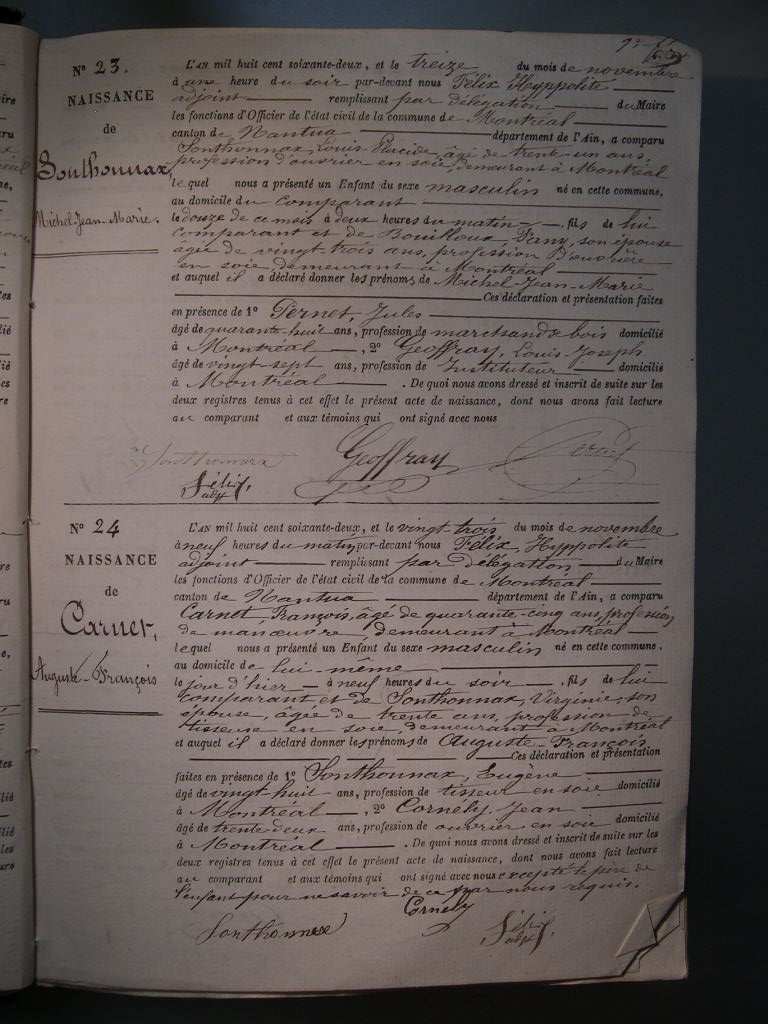 N° 23.
NAISSANCE
de
Sonthonnax,
Michel-Jean-Marie.
L'AN mil huit cent soixante-deux, et le treize du mois de novembre
à une heure du soir par-devant nous Félix, Hyppolite
adjoint remplissant par délégation du Maire
les fonctions d'Officier de l'état civil de la commune de Montréal
canton de Nantua département de l'Ain, a comparu
Sonthonnax, Louis Placide, âgé de trente-un ans,
profession d'ouvrier en soie, demeurant à Montréal
lequel nous a présenté un Enfant du sexe masculin né en cette commune,
au domicile du comparant
le douze de ce mois à deux heures du matin, fils de lui
comparant et de Bouilloux, Fany, son épouse
âgée de vingt trois ans, profession d'ouvrière
en soie, demeurant à Montréal
et auquel il a déclaré donner les prénoms de Michel-Jean-Marie
Ces déclaration et présentation faites
en présence de 1° Pernet, Jules
âgé de quarante-huit ans, profession de marchand de bois domicilié
à Montréal, 2° Geoffray, Louis-Joseph
âgé de vingt-sept ans, profession de Instituteur domicilié
à Montréal. De quoi nous avons dressé et inscrit de suite sur les
deux registres tenus à cet effet le présent acte de naissance, dont nous avons fait lecture
au comparant et aux témoins qui ont signé avec nous
Sonthonnax Geoffray Pernet
Félix, adjt.
N° 24
NAISSANCE
de
Carnet,
Auguste-François
L'AN mil huit cent soixante-deux, et le vingt trois du mois de novembre
à neuf heures du matin par-devant nous Félix, Hyppolite
adjoint remplissant par délégation du Maire
les fonctions d'Officier de l'état civil de la commune de Montréal
canton de Nantua département de l'Ain, a comparu
Carnet, François, âgé de quarante-cinq ans, profession
de manœuvre, demeurant à Montréal
lequel nous a présenté un Enfant du sexe masculin né en cette commune,
au domicile de lui-même
le jour d'hier à neuf heures du soir, fils de lui
comparant et de Sonthonnax, Virginie, son
épouse, âgée de trente ans, profession de
tisseuse en soie, demeurant à Montréal
et auquel il a déclaré donner les prénoms de Auguste-François
Ces déclaration et présentation
faites en présence de 1° Sonthonnax, Eugène
âgé de vingt huit ans, profession de tisseur en soie domicilié
à Montréal, 2° Cornély, Jean
âgé de trente deux ans, profession de ouvrier en soie domicilié
à Montréal. De quoi nous avons dressé et inscrit de suite sur les
deux registres tenus à cet effet le présent acte de naissance, dont nous avons fait lecture
au comparant et aux témoins qui ont signé avec nous excepté le père de
l'enfant pour ne savoir de ce par nous requis.
Cornely
Sonthonnax Félix, adjt.